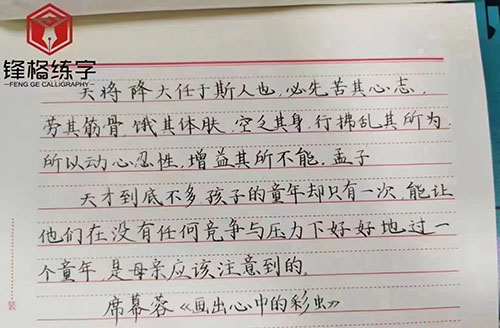 锋楷练字
FENG GE CALLIGRAPHY
天将降大任于斯人也,必先苦其心志,
劳其筋骨 饿其体肤,空乏其身,行拂乱其所为,
所以动心忍性,增益其所不能.孟子
天才到底不多,孩子的童年却只有一次,能让
他们在没有任何竞争与压力下好好地过一
个童年,是母亲应该注意到的.
席慕蓉《画出心中的彩虹》
装